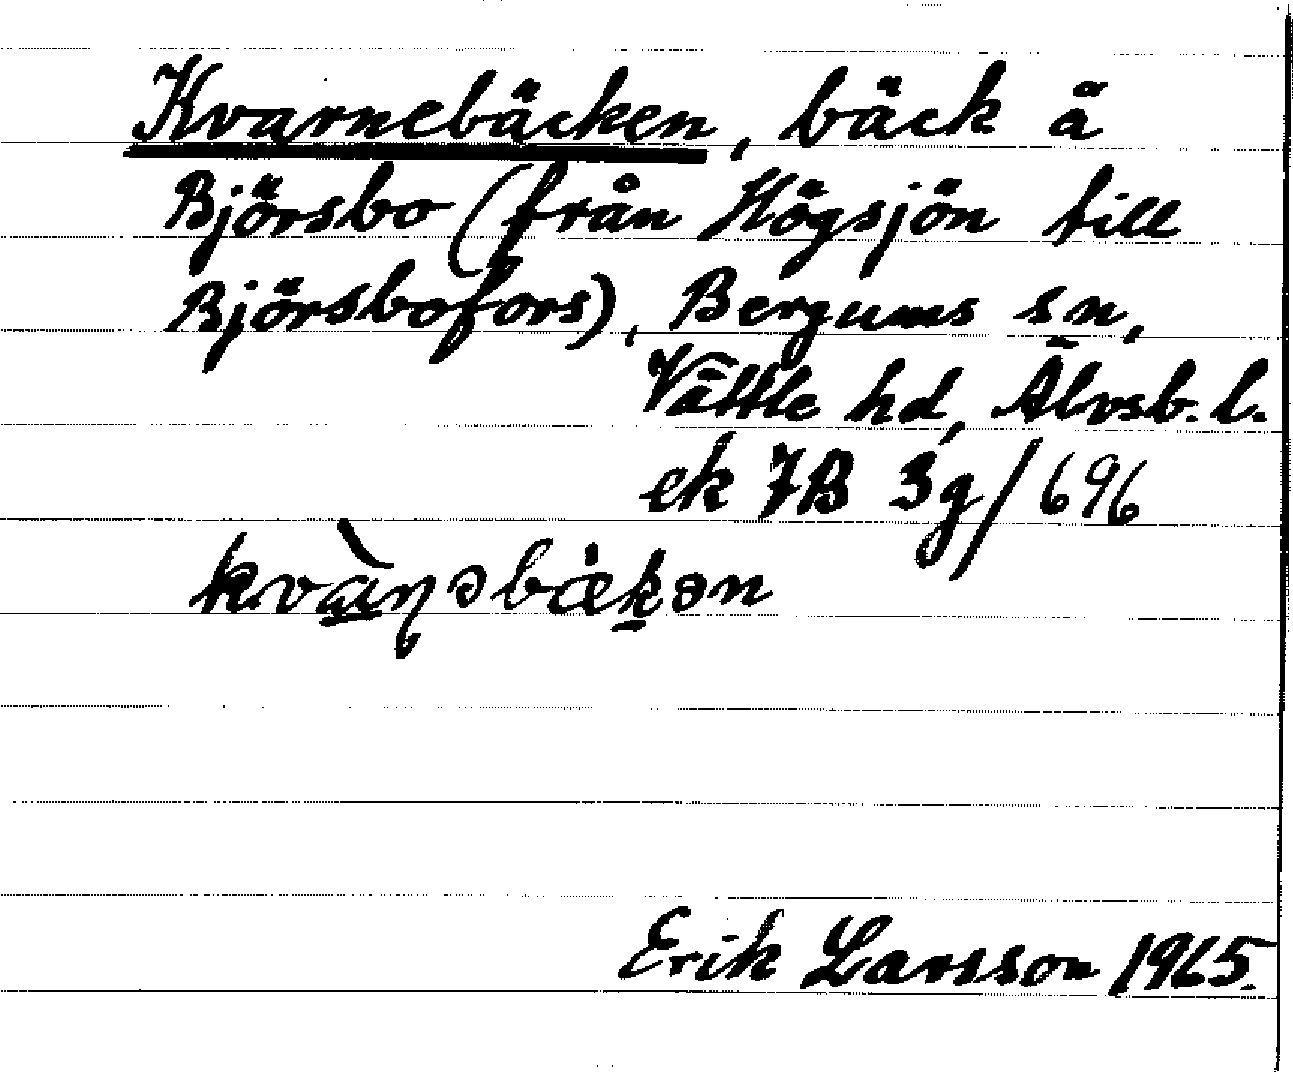 Kvarnebäcken, bäck å
Björsbo (från Högsjön till
Björsbofors), Bergums sn,
Vättle hd, Älvsb. l.
ek 7B 3g/696
kvàɳəbækən
Erik Larsson 1965.